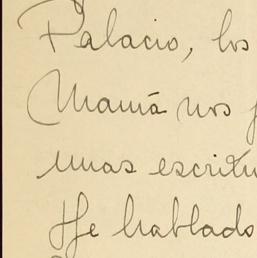 Palacio, los
Mamá nos
unas escritu
He hablado